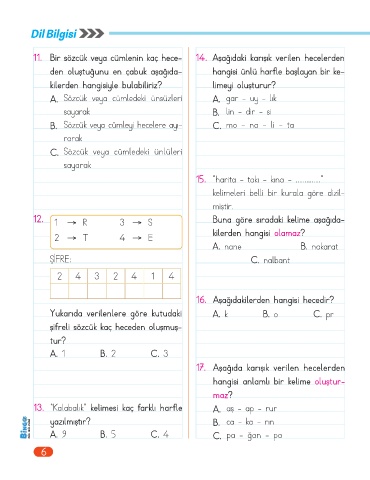 Dil Bilgisi
11. Bir sözcük veya cümlenin kaç hece-
den oluştuğunu en çabuk aşağıda-
kilerden hangisiyle bulabiliriz?
A. Sözcük veya cümledeki ünsüzleri
sayarak
B. Sözcük veya cümleyi hecelere ayı-
rarak
C. Sözcük veya cümledeki ünlüleri
sayarak
12.
1 → R 3 → S
2 → T 4 → E
ŞİFRE:
2 4 3 2 4 1 4
Yukarıda verilenlere göre kutudaki
şifreli sözcük kaç heceden oluşmuş-
tur?
A. 1 B. 2 C. 3
13. "Kalabalık" kelimesi kaç farklı harfle
yazılmıştır?
A. 9 B. 5 C. 4
14. Aşağıdaki karışık verilen hecelerden
hangisi ünlü harfle başlayan bir ke-
limeyi oluşturur?
A. gar - uy - lık
B. lin - dir - si
C. mo - na - li - ta
15. "harita - takı - kına - ............"
kelimeleri belli bir kurala göre dizil-
miştir.
Buna göre sıradaki kelime aşağıda-
kilerden hangisi olamaz?
A. nane B. nakarat
C. nalbant
16. Aşağıdakilerden hangisi hecedir?
A. k B. o C. pr
17. Aşağıda karışık verilen hecelerden
hangisi anlamlı bir kelime oluştur-
maz?
A. aş - ap - rur
B. ca - ka - rın
C. pa - ğan - pa
BİNGO
6